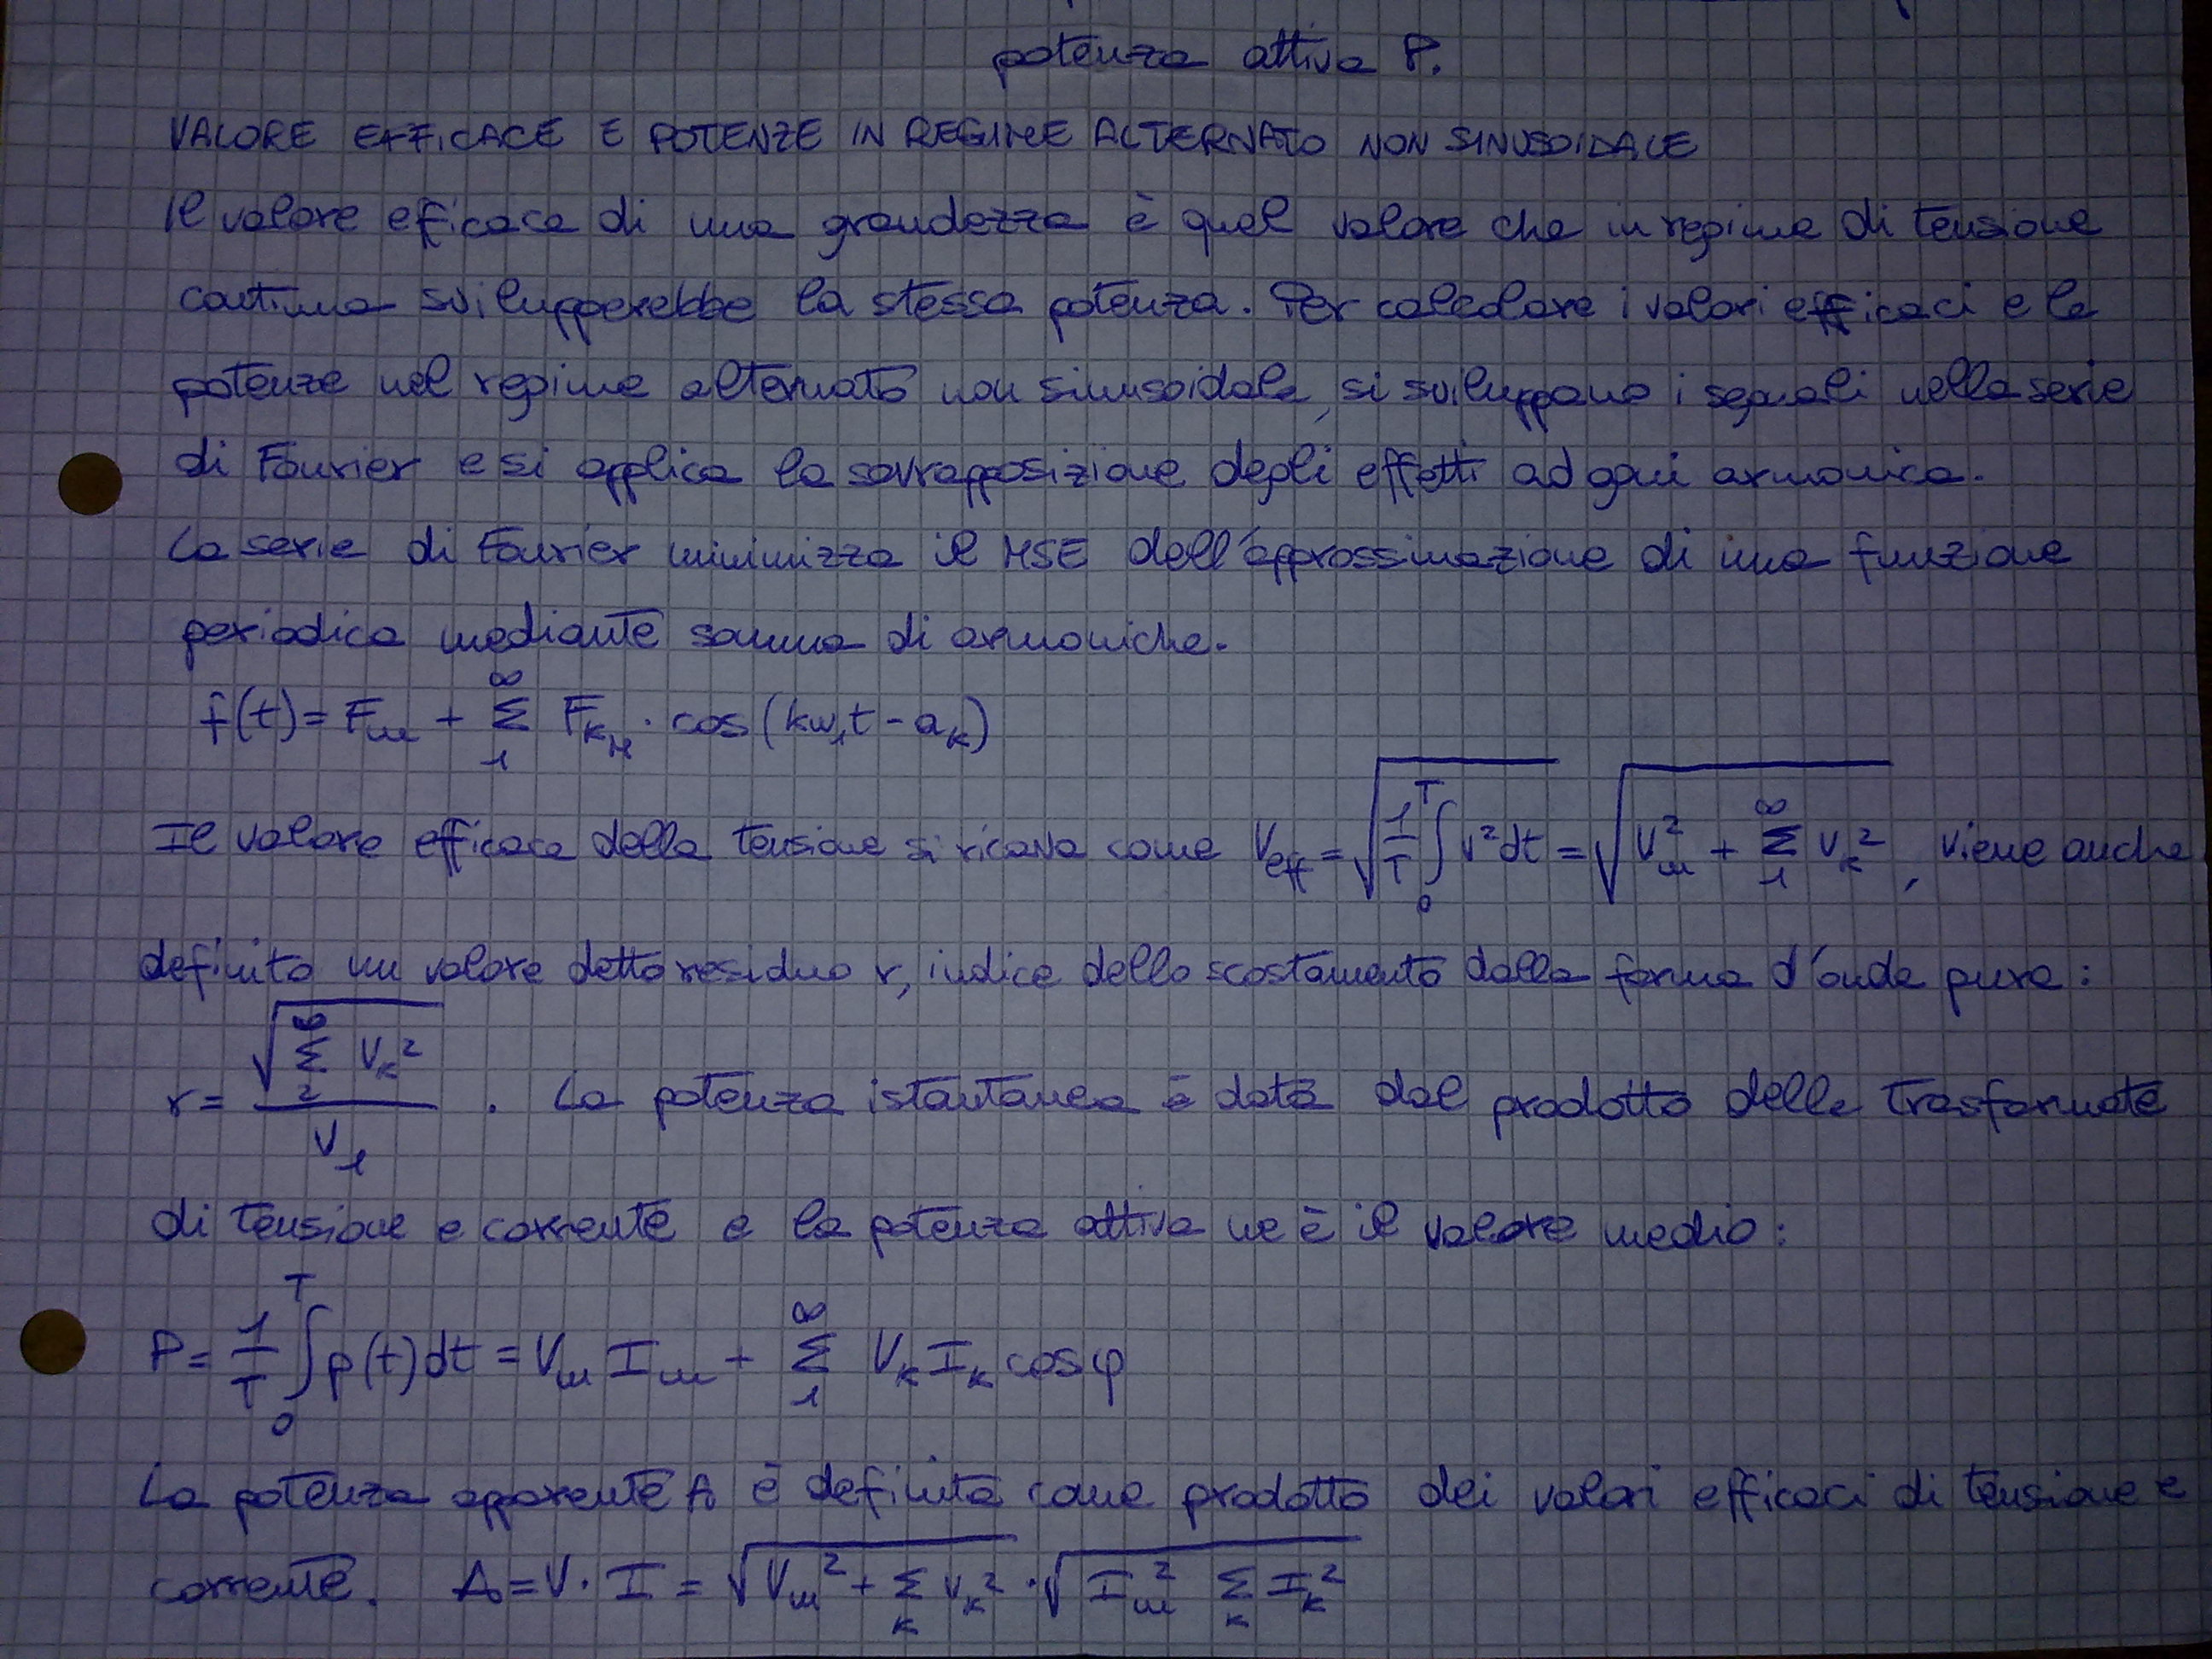 potenza attiva P.
VALORE EFFICACE E POTENZE IN REGIME ALTERNATO NON SINUSOIDALE
Il valore efficace di una grandezza è quel valore che in regime di tensione
continua svilupperebbe la stessa potenza. Per calcolare i valori efficaci e le
potenze nel regime alternato non sinusoidale, si sviluppano i segnali nella serie
di Fourier e si applica la sovrapposizione degli effetti ad ogni armonica.
La serie di Fourier minimizza il MSE dell'approssimazione di una funzione
periodica mediante somma di armoniche.
f(t) = F_m + Σ_1^∞ F_{k_M} · cos(kω_1t - a_k)
Il valore efficace della tensione si ricava come V_eff = √(1/T ∫_0^T v²dt) = √(V_m² + Σ_1^∞ V_k²), viene anche
definito un valore detto residuo r, indice dello scostamento dalla forma d'onda pura:
r = √(Σ_2^∞ V_k²) / V_1 . La potenza istantanea è data dal prodotto delle trasformate
di tensione e corrente e la potenza attiva ne è il valore medio:
P = 1/T ∫_0^T p(t)dt = V_m I_m + Σ_1^∞ V_k I_k cosφ
La potenza apparente A è definita come prodotto dei valori efficaci di tensione e
corrente. A = V · I = √(V_m² + Σ_k V_k²) · √(I_m² Σ_k I_k²)